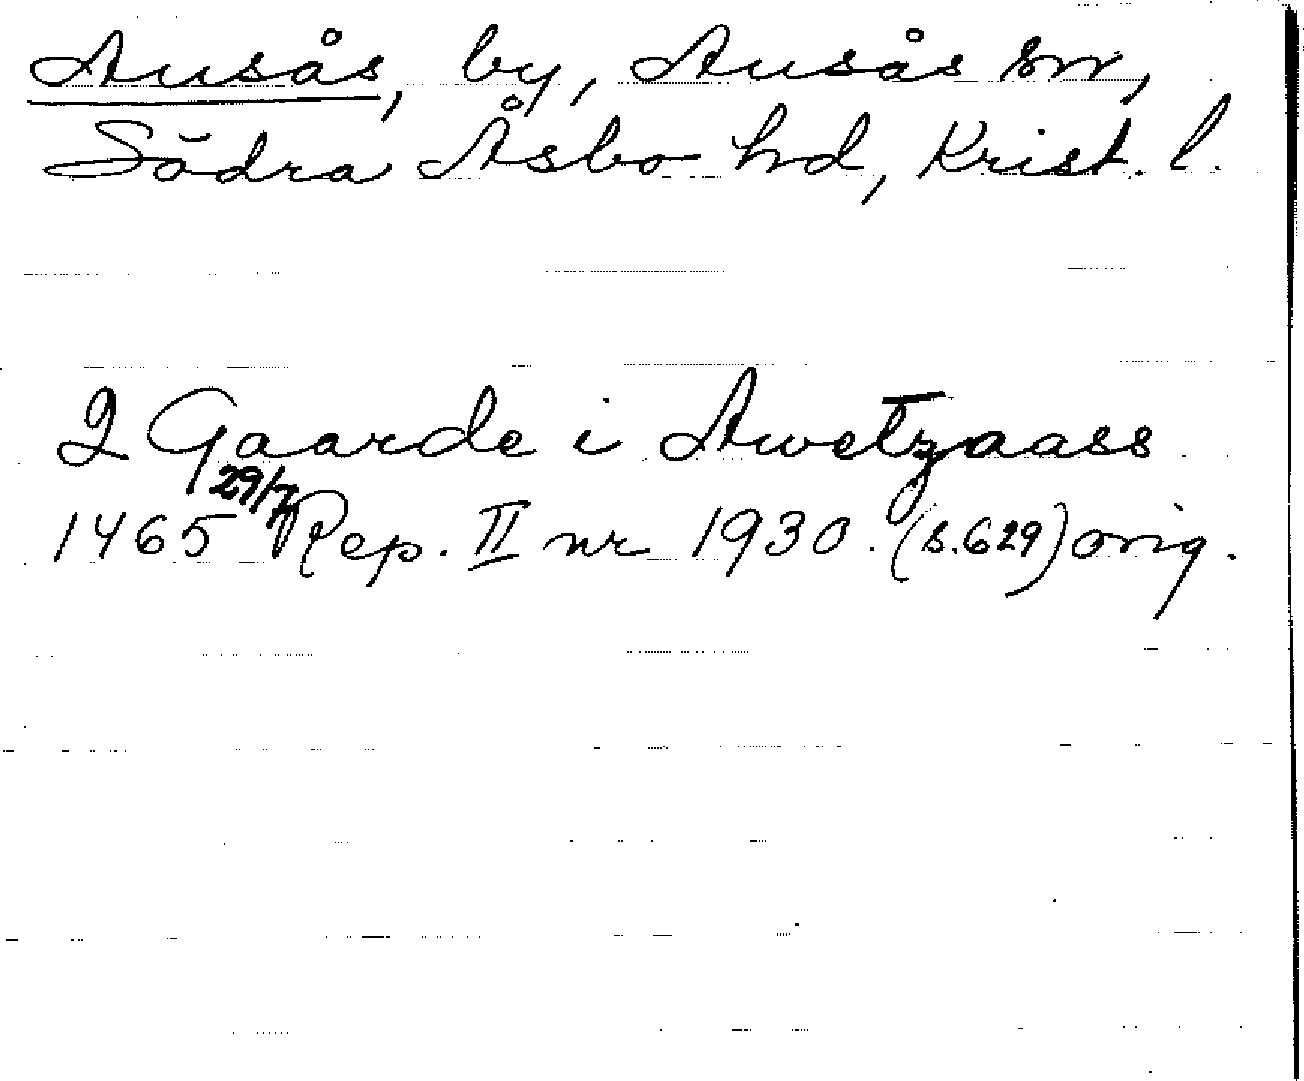 Ausås, by, Ausås sn,
Södra Åsbo hd, Krist. l.
2 Gaarde i Awetzaass
1465 29/7 Rep. II nr 1930. (s. 629) orig.